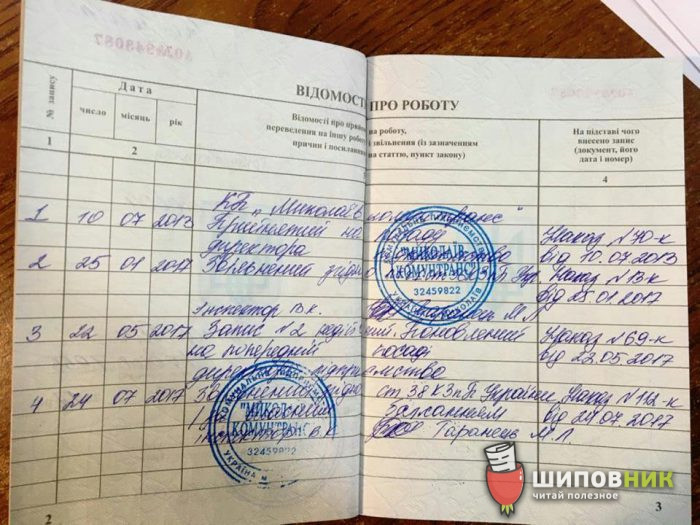 ВІДОМОСТ ПРО РОБОТУ
№ запису
Дата
число
місяць
рік
Відомості про прийом
переведення на іншу робо
причин і посилан
на роботу,
і звільнення (із зазначенням
на статтю, пункт закону)
На підставі чого
внесено запис
(документ, його
дата і номер)
1
2
4
КП „Миколаїв комунтранс"
1 10 07 2013 Прийнятий на посаду
директора
Наказ №70-к
від 10.07.2013
2 25 01 2017 Звільнений згідно
Наказ №13-к
від 25.01.2017
Інспектор В.К. Таранець М.Л.
3 22 05 2017 Запис №2 Поновлений
на попередній посаді
Наказ №69-к
від 22.05.2017
4 24 07 2017 Звільнений згідно ст 38 КЗпП України
бажанням
Наказ №112-к
від 24.07.2017
інспектор В.К. Таранець М.Л
"МИКОЛАЇВ
КОМУНТРАНС"
32459822
УКРАЇНА
"МИКОЛАЇВ
КОМУНТРАНС"
32459822
УКРАЇНА
2
3
ШИПОВНИК
читай полезное